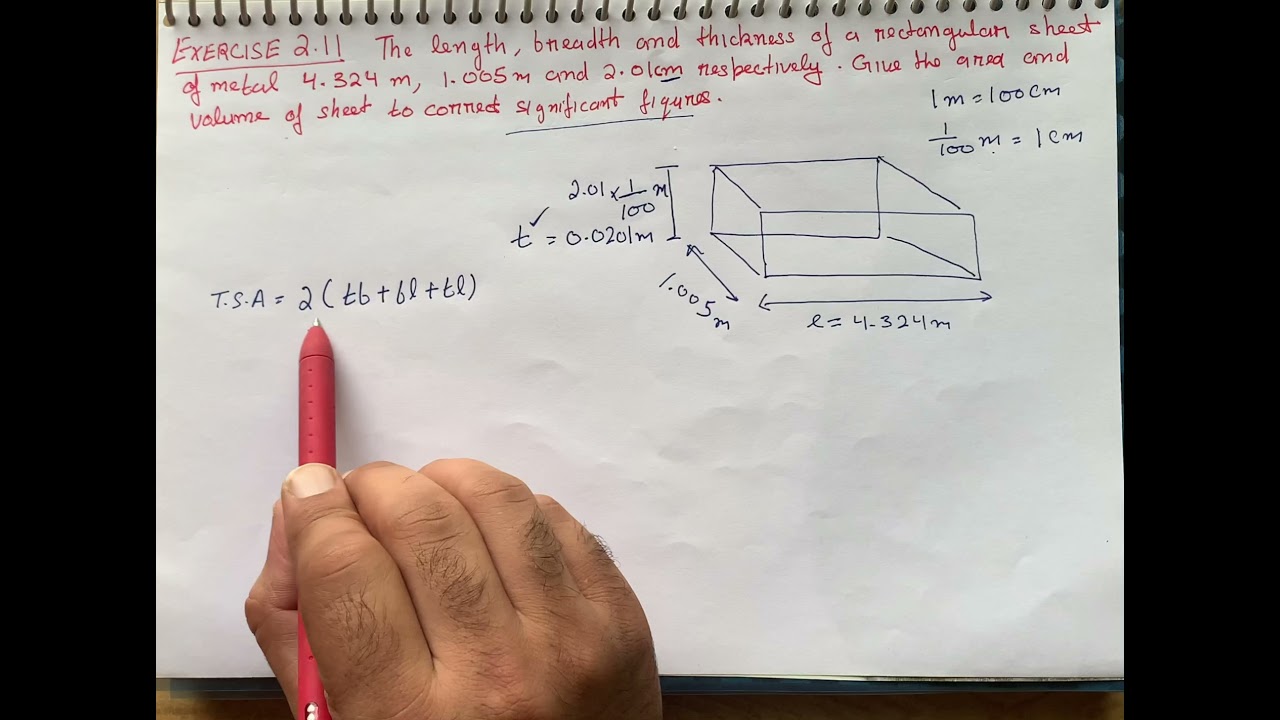 EXERCISE 2.11 The length, breadth and thickness of a rectangular sheet
of metal 4.324 m, 1.005 m and 2.01cm respectively. Give the area and
volume of sheet to correct significant figures.
1m = 100cm
1/100 m = 1cm
2.01 × 1/100 m
t = 0.0201m
T.S.A = 2(tb + bl + tl)
1.005m
l = 4.324m